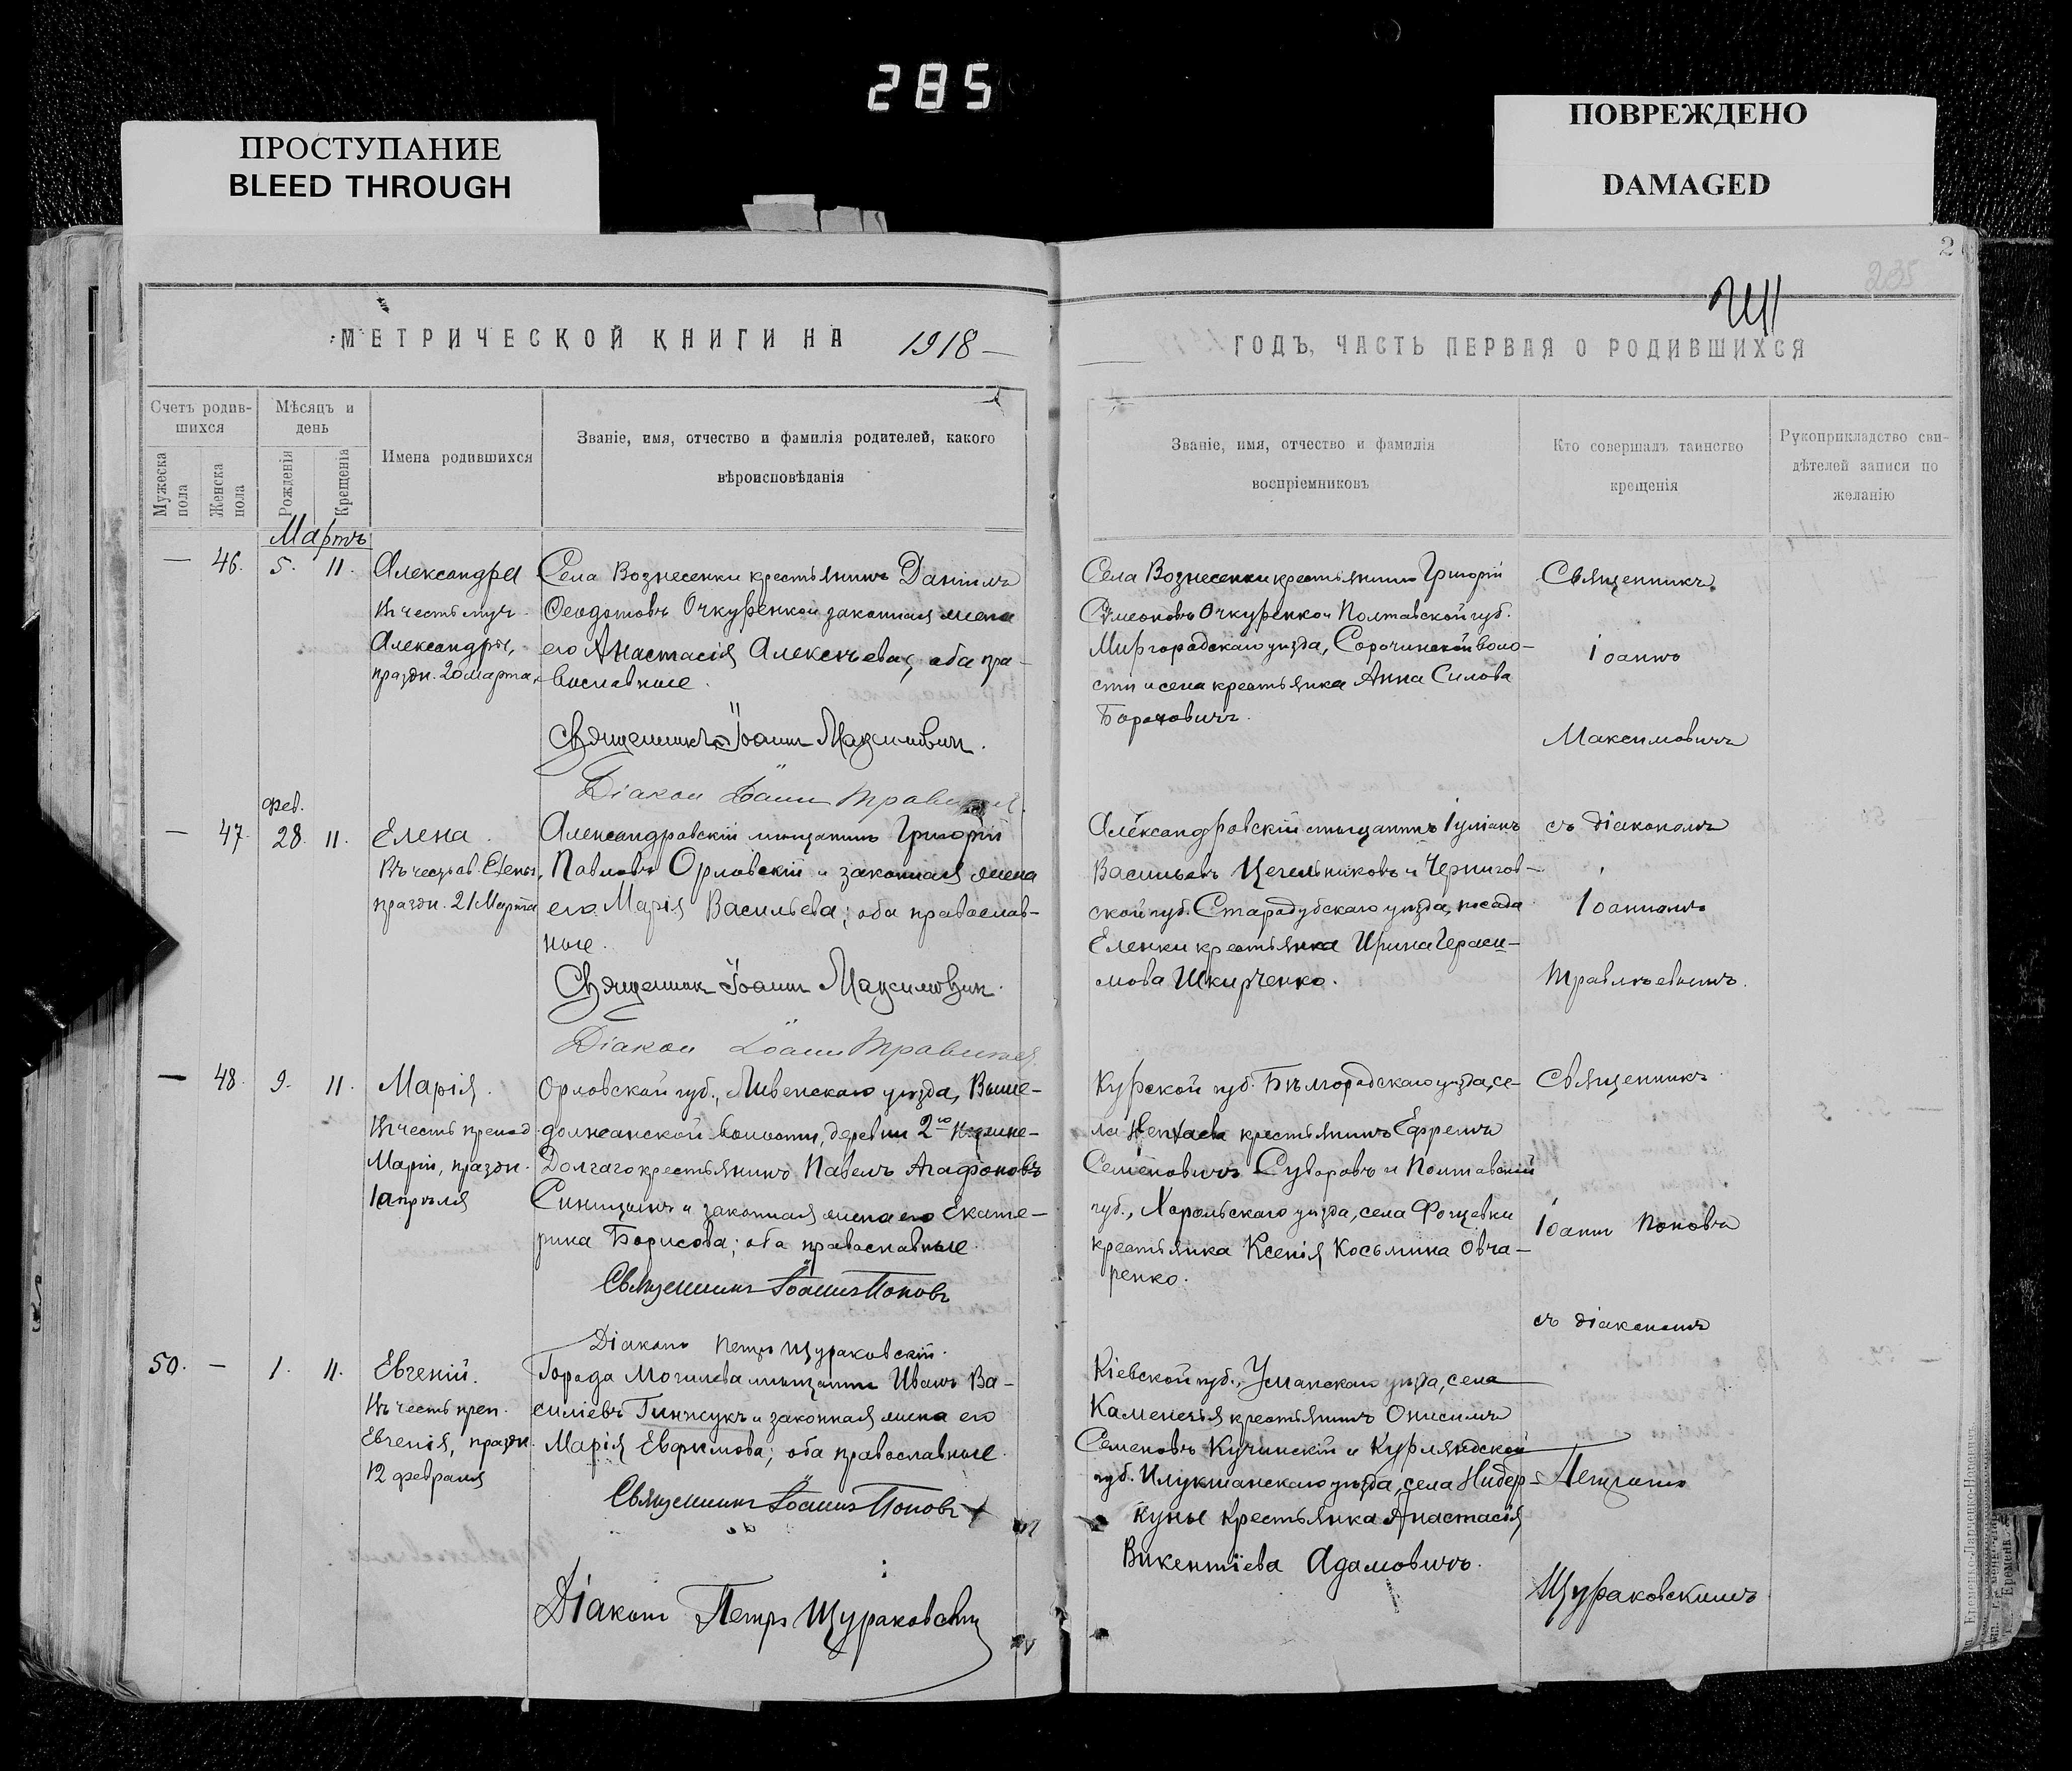 285
ПРОСТУПАНИЕ
BLEED THROUGH
ПОВРЕЖДЕНО
DAMAGED
2
235
МЕТРИЧЕСКОЙ КНИГИ НА 1918
Счетъ родив-
шихся
Мѣсяцъ и
день
Мужеска
пола
Женска
пола
Рожденія
Крещенія
Имена родившихся
Званіе, имя, отчество и фамилія родителей, какого
вѣроисповѣданія
Мартъ
— 46. 5. 11.
Александра
въ честь муч.
Александры,
праздн. 20 Марта.
Села Вознесенки крестьянинъ Даніилъ
Феодотовъ Очкуренко и законная жена
его Анастасія Алексѣева; оба пра-
вославные.
Священникъ Іоаннъ Максимович.
Діакон Іоанн
фев.
— 47. 28. 11.
Елена.
Въ честь св. Елены,
праздн. 21 Марта
Александровскій мѣщанинъ Григорій
Павловъ Орловскій и законная жена
его Марія Васильева; оба православ-
ные.
Священник Іоанн Максимович.
Діакон Іоанн
— 48. 9. 11.
Марія.
въ честь препод.
Маріи, праздн.
1 апрѣля
Орловской губ., Ливенскаго уѣзда, Выше-
должанской волости, деревни 2го
Долгаго крестьянинъ Павелъ Агафоновъ
Синицынъ и законная жена его Екате-
рина Борисова; оба православные.
Священник Іоаннъ Поповъ
Діаконъ Петръ Щураковскій.
50. — 1. 11.
Евгеній.
Въ честь преп.
Евгенія, праздн.
12 февраля
Города Могилева мѣщанин Иванъ Ва-
силіевъ Гинжукъ и законная жена его
Марія Евфимова; оба православные.
Священник Іоаннъ Поповъ
Діакон Петръ Щураковскій
ГОДЪ, ЧАСТЬ ПЕРВАЯ О РОДИВШИХСЯ
Званіе, имя, отчество и фамилія
воспріемниковъ
Кто совершалъ таинство
крещенія
Рукоприкладство сви-
дѣтелей записи по
желанію
Села Вознесенки крестьянинъ Григорій
Симеоновъ Очкуренко и Полтавской губ.
Миргородскаго уѣзда, Сорочинской воло-
сти и села крестьянка Анна Силова
Борохович.
Священникъ
Іоаннъ
Максимовичъ
Александровскій мѣщанинъ Іуліанъ
Васильевъ Цегельниковъ и Чернигов-
ской губ. Старадубскаго уѣзда, посада
Еленки крестьянка Ирина Гераси-
мова Шкирченко.
съ діакономъ
Іоанномъ
Курской губ. Бѣлгородскаго уѣзда, се-
ла крестьянинъ Ефремъ
Семеновичъ Суворовъ и Полтавской
губ., Хорольскаго уѣзда, села
крестьянка Ксенія Косьмина Овча-
ренко.
Священникъ
Іоанн Поповъ
съ діакономъ
Кіевской губ., Уманскаго уѣзда, села
Каменечья крестьянинъ Онисимъ
Семеновъ Кучинскій и Курляндской
губ. Иллукштанскаго уѣзда, села Нидер-
куны крестьянка Анастасія
Викентіева Адамовичъ.
Петромъ
Щураковскимъ